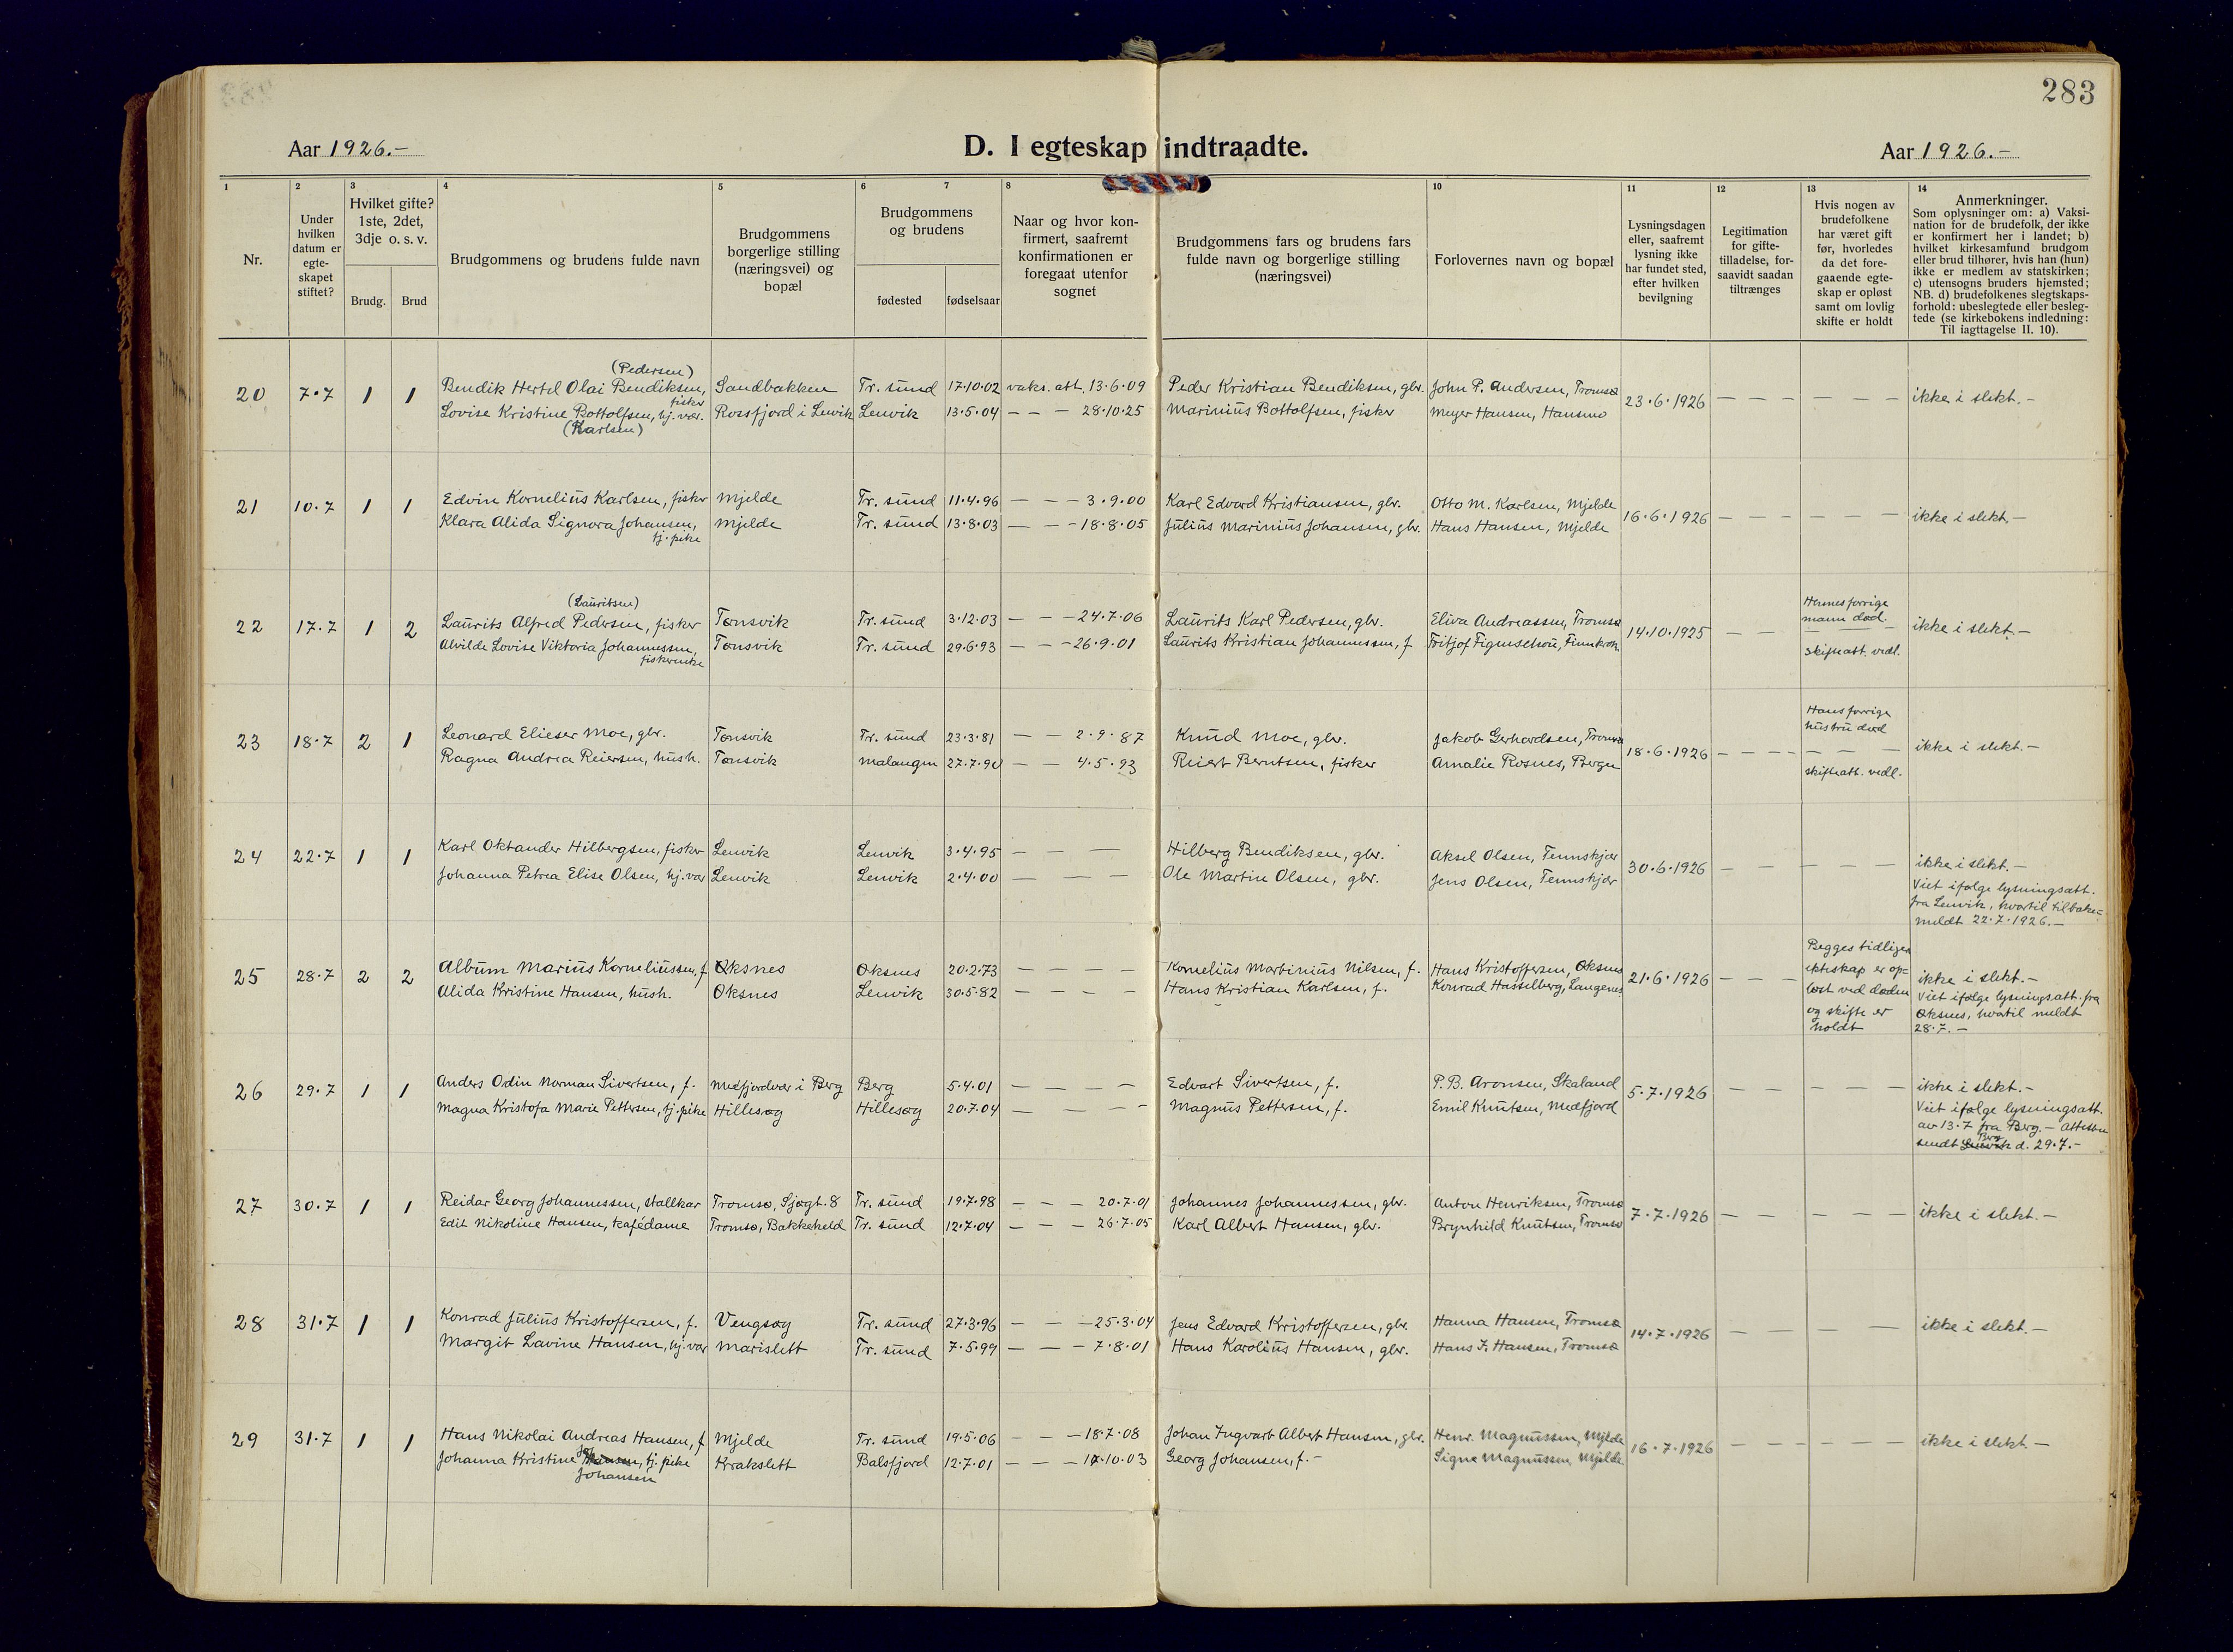 283
Aar 1926.-
D. I egteskap indtraadte.
Aar 1926.-
1 2 3 4 5 6 7 8 10 11 12 13 14
Nr.
Under hvilken datum er egte-skapet stiftet?
Hvilket gifte? 1ste, 2det, 3dje o. s. v.
Brudg. Brud
Brudgommens og brudens fulde navn
Brudgommens borgerlige stilling (næringsvei) og bopæl
Brudgommens og brudens
fødested fødselsaar
Naar og hvor kon-firmert, saafremt konfirmationen er foregaat utenfor sognet
Brudgommens fars og brudens fars fulde navn og borgerlige stilling (næringsvei)
Forlovernes navn og bopæl
Lysningsdagen eller, saafremt lysning ikke har fundet sted, efter hvilken bevilgning
Legitimation for gifte-tilladelse, for-saavidt saadan tiltrænges
Hvis nogen av brudefolkene har været gift før, hvorledes da det fore-gaaende egte-skap er opløst samt om lovlig skifte er holdt
Anmerkninger.
Som oplysninger om: a) Vaksi-nation for de brudefolk, der ikke er konfirmert her i landet; b) hvilket kirkesamfund brudgom eller brud tilhører, hvis han (hun) ikke er medlem av statskirken; c) utensogns bruders hjemsted; NB. d) brudefolkenes slegtskaps-forhold: ubeslegtede eller besleg-tede (se kirkebokens indledning: Til iagttagelse II. 10).
(Pedersen)
20 7.7 1 1 Bendik Hertel Olai Bendiksen, fisker Sandbakken Tr. sund 17.10.02 vaks. att. 13.6.09 Peder Kristian Bendiksen, gbr. John P. Andersen, Tromsø 23.6.1926 — — — — — — ikke i slekt.-
Lovise Kristine Bottolfsen, hj. vær. Rossfjord i Lenvik Lenvik 13.5.04 — — — 28.10.25 Marinius Bottolfsen, fisker Meyer Hansen, Hansmo
(Karlsen)
21 10.7 1 1 Edvin Kornelius Karlsen, fisker Mjelde Tr. sund 11.4.96 — — — 3.9.00 Karl Edvard Kristiansen, gbr. Otto M. Karlsen, Mjelde 16.6.1926 — — — — — ikke i slekt.-
Klara Alida Signora Johansen, tj. pike Mjelde Tr. sund 13.8.03 — — — 18.8.05 Julius Marinius Johansen, gbr. Hans Hansen, Mjelde
(Lauritsen)
22 17.7 1 2 Laurits Alfred Pedersen, fisker Tønsvik Tr. sund 3.12.03 — — — 24.7.06 Laurits Karl Pedersen, gbr. Eliva Andreassen, Tromsø 14.10.1925 — — Hennes forrige mann død. skifteatt. vedl. ikke i slekt.-
Alvilde Lovise Viktoria Johannessen, fiskerenke Tønsvik Tr. sund 29.6.93 — — — 26.9.01 Laurits Kristian Johannessen, f. Fritjof Figenschou, Finnkrok
23 18.7 2 1 Leonard Elieser Moe, gbr. Tønsvik Tr. sund 23.3.81 — — 2.9.87 Knud Moe, gbr. Jakob Gerhardsen, Tromsø 18.6.1926 — — — — Hans forrige hustru død — — — skifteatt. vedl. ikke i slekt.-
Ragna Andrea Reiersen, hush. Tønsvik Malangen 27.7.90 — — 4.5.93 Reiert Berntsen, fisker Amalie Rosnes, Bergen
24 22.7 1 1 Karl Oktander Hilbergsen, fisker Lenvik Lenvik 3.4.95 — — — Hilberg Bendiksen, gbr. Aksel Olsen, Tennskjær 30.6.1926 — — — — — ikke i slekt.-
Johanna Petrea Elise Olsen, hj. vær Lenvik Lenvik 2.4.00 — — — Ole Martin Olsen, gbr. Jens Olsen, Tennskjær
Viet ifølge lysningsatt.
fra Lenvik, hvortil tilbake-
meldt 22.7.1926.-
25 28.7 2 2 Album Marius Korneliussen, f. Øksnes Øksnes 20.2.73 — — — — Kornelius Marbinius Nilsen, f. Hans Kristoffersen, Øksnes 21.6.1926 — — Begges tidligere ekteskap er op-løst ved døden og skifte er holdt ikke i slekt.-
Alida Kristine Hansen, hush. Øksnes Lenvik 30.5.82 — — — — Hans Kristian Karlsen, f. Konrad Hasselberg, Langenes
Viet ifølge lysningsatt. fra
Øksnes, hvortil meldt
28.7.-
26 29.7 1 1 Anders Odin Norman Sivertsen, f. Mefjordvær i Berg Berg 5.4.01 — — — — Edvart Sivertsen, f. P. B. Aronsen, Skaland 5.7.1926 — — — — — ikke i slekt.-
Magna Kristofa Marie Pettersen, tj. pike Hillesøy Hillesøy 20.7.04 — — — — Magnus Pettersen, f. Emil Knutsen, Mefjord
Viet ifølge lysningsatt.
av 13.7 fra Berg.- Attesten
sendt Berg d. 29.7.-
27 30.7 1 1 Reidar Georg Johannessen, stallkar Tromsø, Sjøgt. 8 Tr. sund 19.7.98 — — — 20.7.01 Johannes Johannessen, gbr. Anton Henriksen, Tromsø 7.7.1926 — — — — — ikke i slekt.-
Edit Nikoline Hansen, kafédame Tromsø, Bakkeheld Tr. sund 12.7.04 — — — 26.7.05 Karl Albert Hansen, gbr. Brynhild Knutsen, Tromsø
28 31.7 1 1 Konrad Julius Kristoffersen, f. Vengsøy Tr. sund 27.3.96 — — — 25.3.04 Jens Edvard Kristoffersen, gbr. Hanna Hansen, Tromsø 14.7.1926 — — — — ikke i slekt.-
Margit Lavine Hansen, hj. vær Marislett Tr. sund 7.5.99 — — — 7.8.01 Hans Karolius Hansen, gbr. Hans J. Hansen, Tromsø
29 31.7 1 1 Hans Nikolai Andreas Hansen, f. Mjelde Tr. sund 19.5.06 — — — 18.7.08 Johan Ingvart Albert Hansen, gbr. Henr. Magnussen, Mjelde 16.7.1926 — — — — — ikke i slekt.-
Johanna Kristine Hansen, tj. pike Krakslett Balsfjord 12.7.01 — — — 17.10.03 Georg Johansen, f.- Signe Magnussen, Mjelde
Johansen